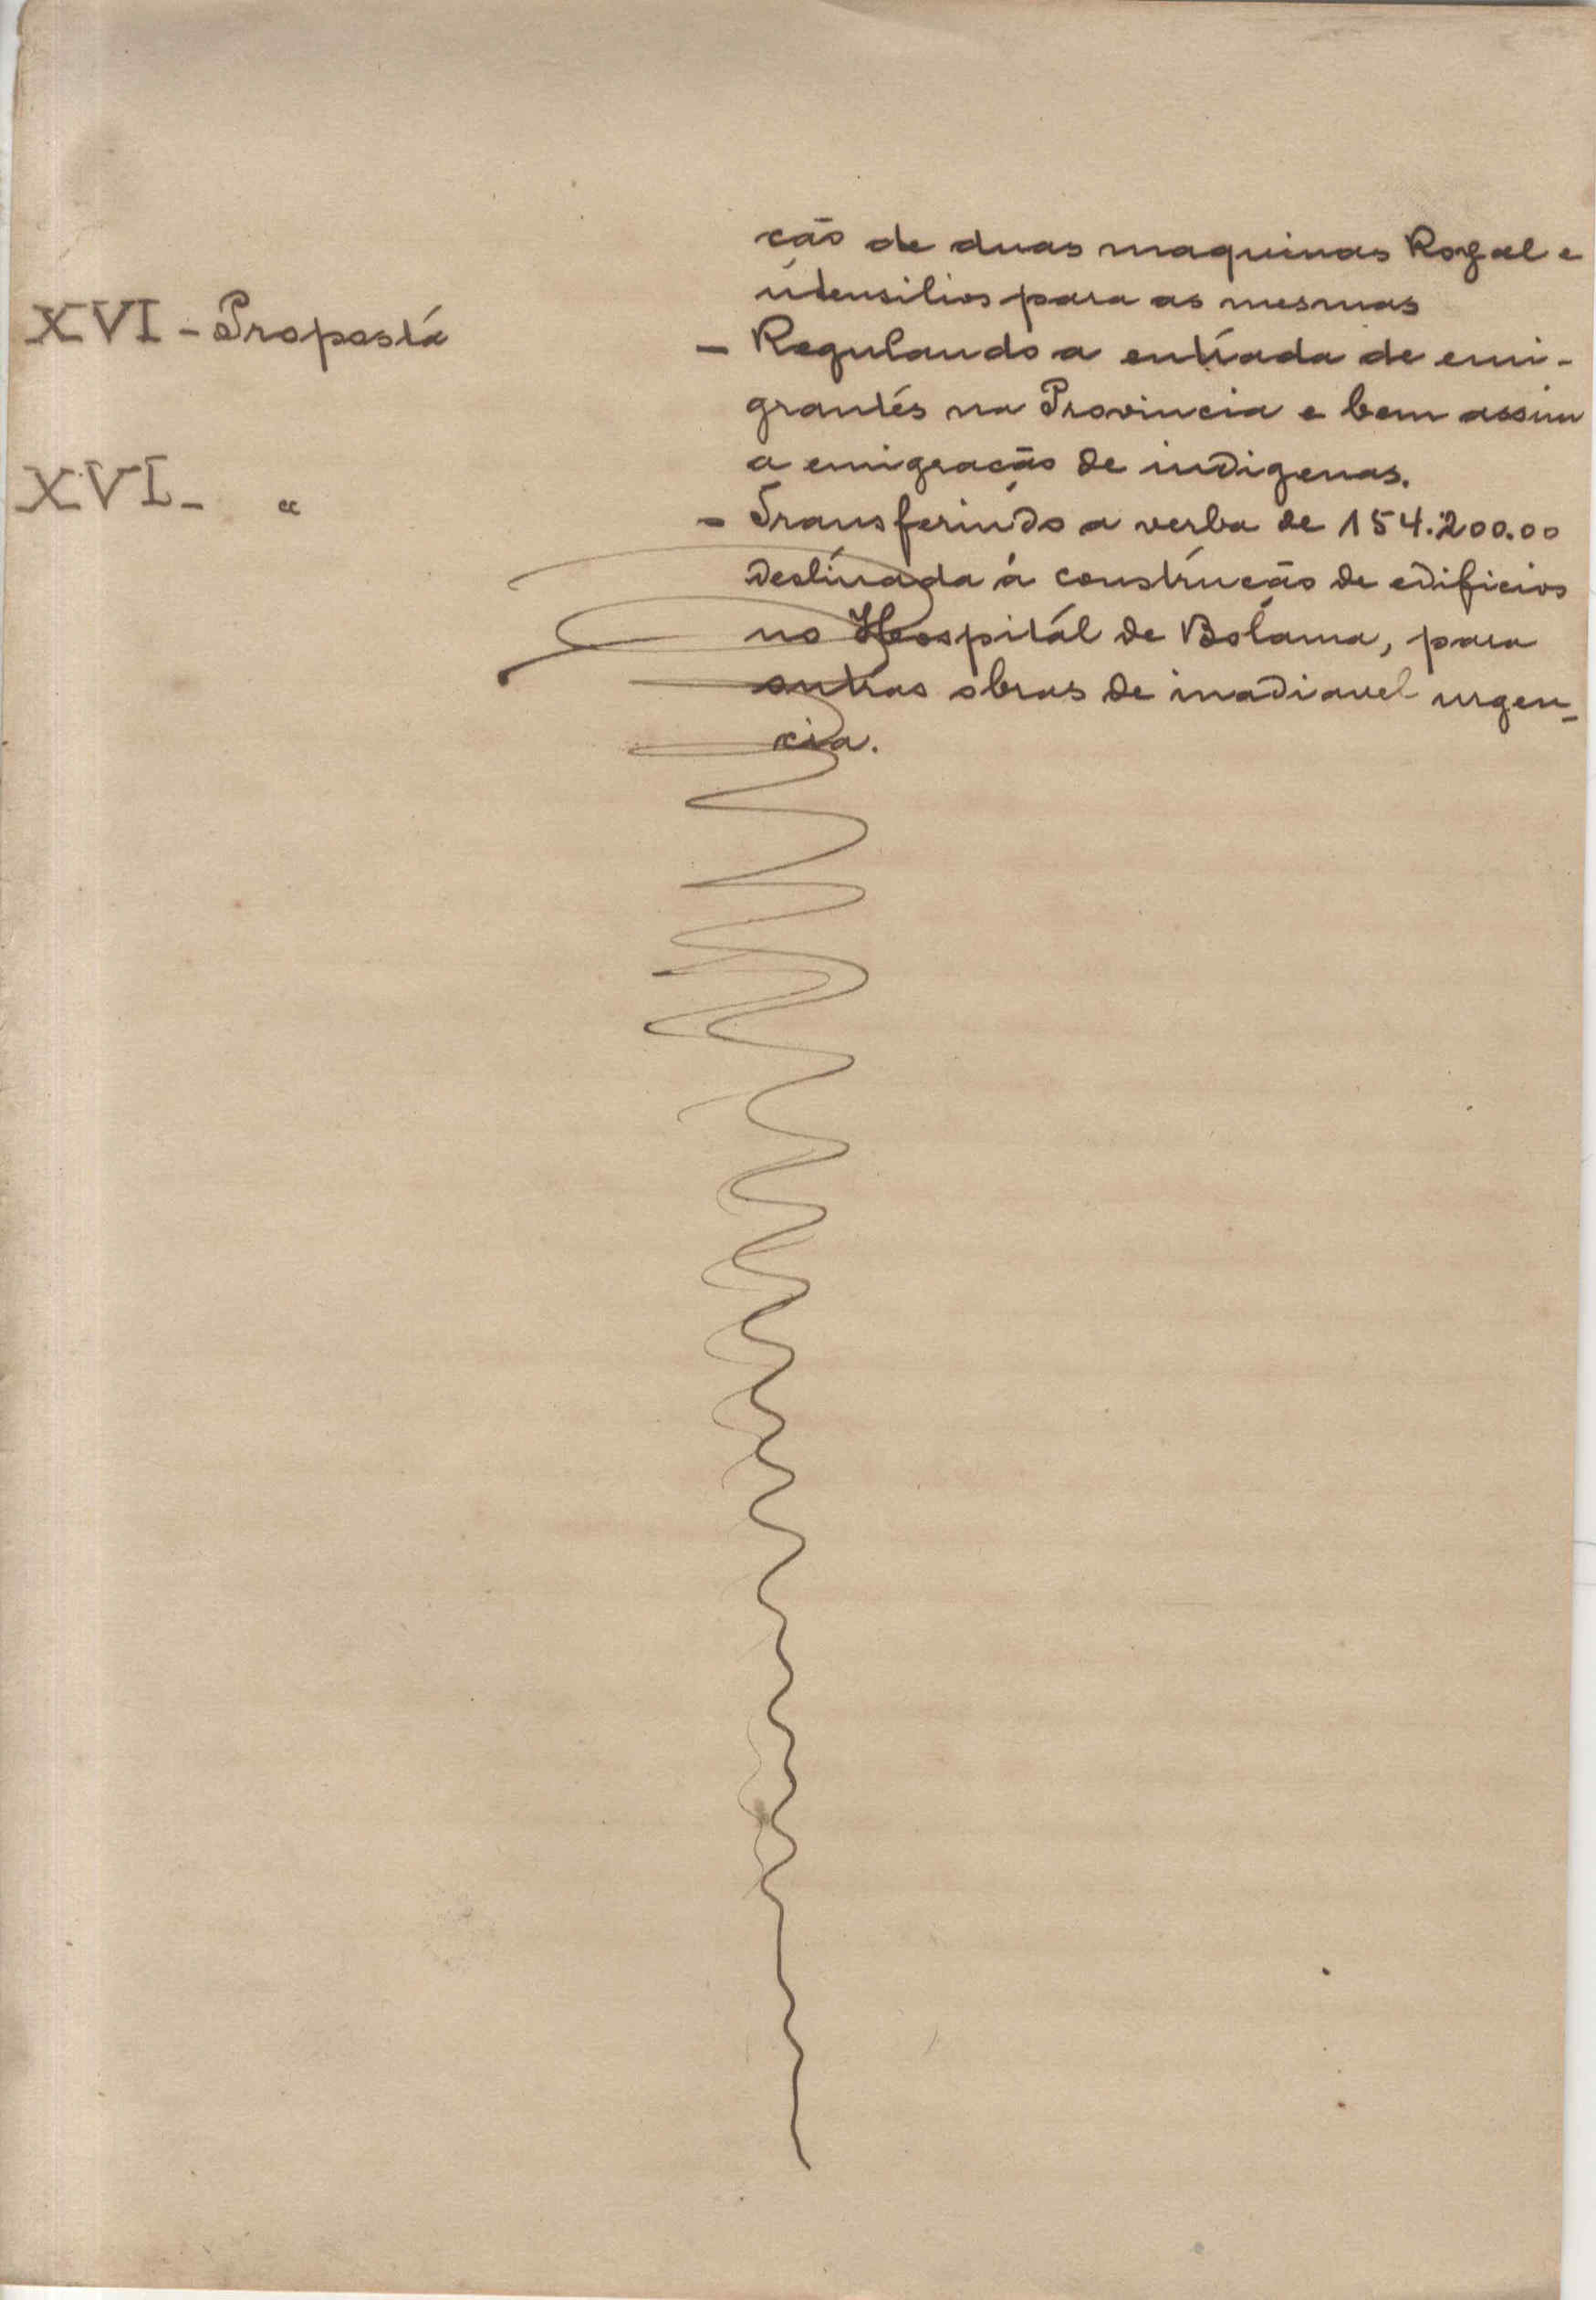 ção de duas maquinas Royal e
utensilios para as mesmas
XVI - Proposta - Regulando a entrada de emi-
grantes na Provincia e bem assim
a emigração de indigenas.
XVI - " - Transferindo a verba de 154.200.00
destinada á construcão de edificios
no Hospital de Bolama, para
outras obras de inadiavel urgen-
cia.